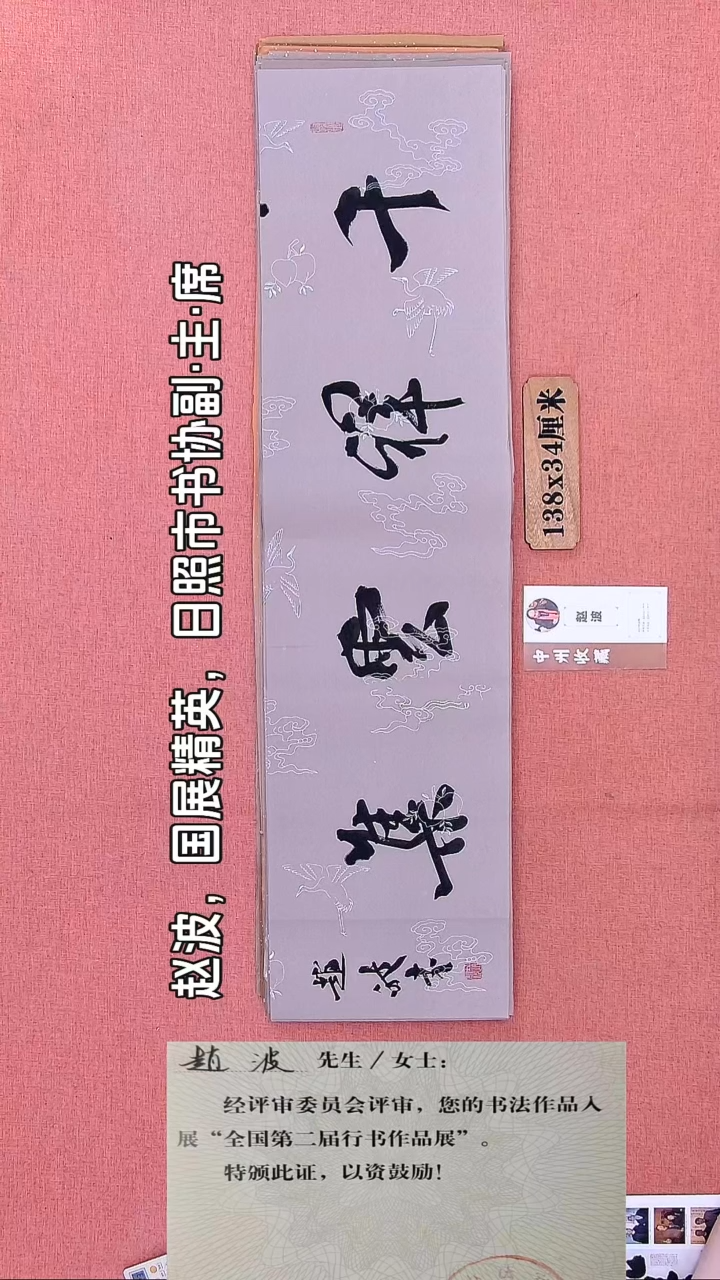 赵波，国展精英，日照市书协副·主·席
千祥雲集
趙波書
138x34厘米
赵波
中州收藏
趙波 先生／女士：
经评审委员会评审，您的书法作品入
展“全国第二届行书作品展”。
特颁此证，以资鼓励！